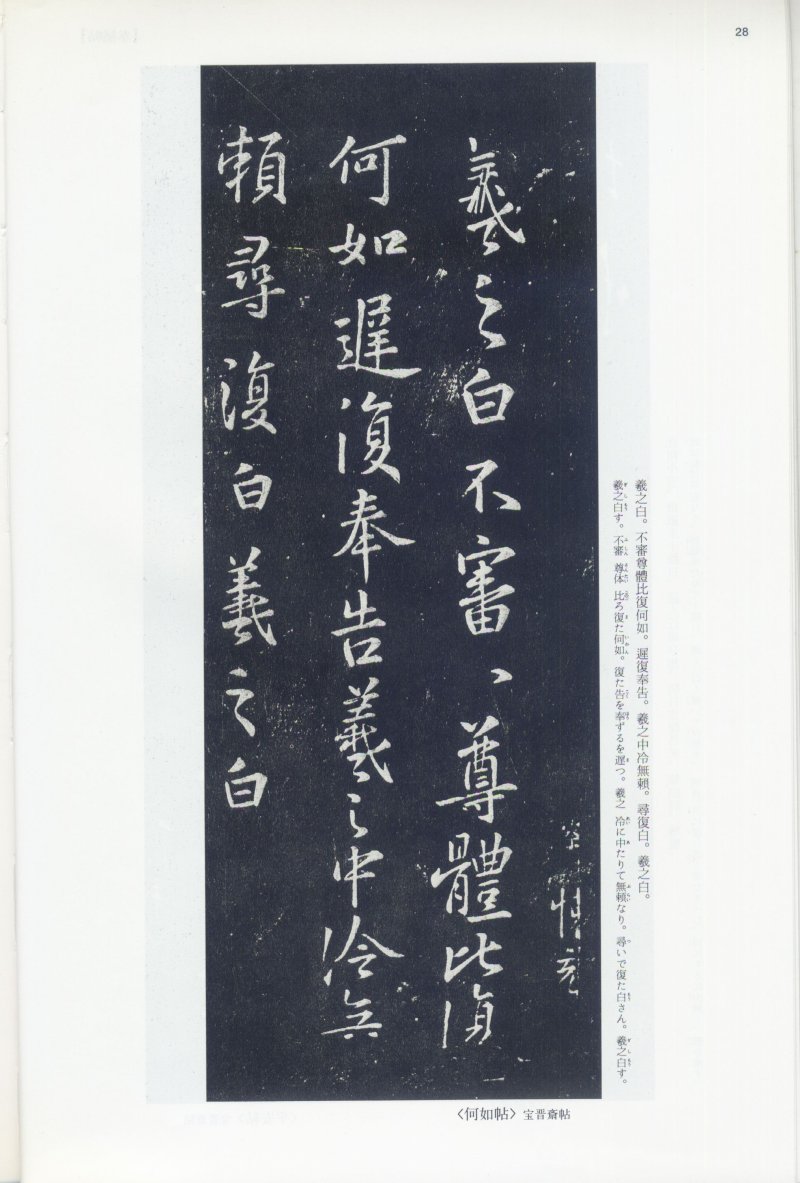 28
羲之白。不審尊體比復何如。遲復奉告。羲之中冷無頼。尋復白。羲之白。
羲之白す。不審 尊体 比ろ復た何如。復た告を奉ずるを遅つ。羲之 冷に中たりて無頼なり。尋いで復た白さん。羲之白す。
羲之白不審、尊體比復
何如遲復奉告羲之中冷無
頼尋復白羲之白
〈何如帖〉宝晋斎帖